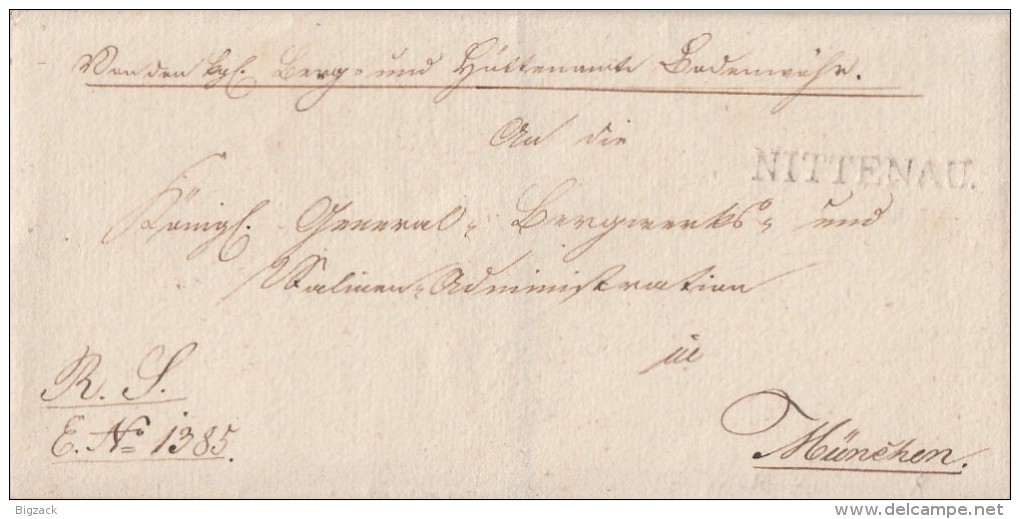 Von dem kgl. Berg- und Hüttenamte Bodenwöhr.
An die
NITTENAU.
Königl. General- Bergwerks- und
Salinen-Administration
in
R. S.
E. No 1385.
München.
Bigzack
delcampe.net